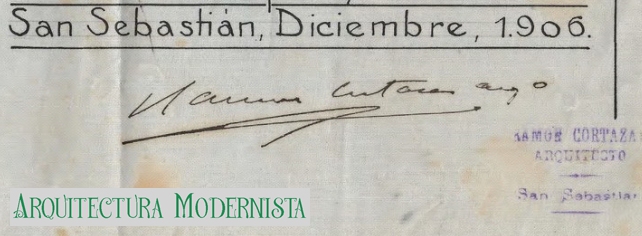 San Sebastián, Diciembre, 1.906.
Ramon Cortazar arqº
RAMON CORTAZA
ARQUITECTO
San Sebastian
ARQUITECTURA MODERNISTA